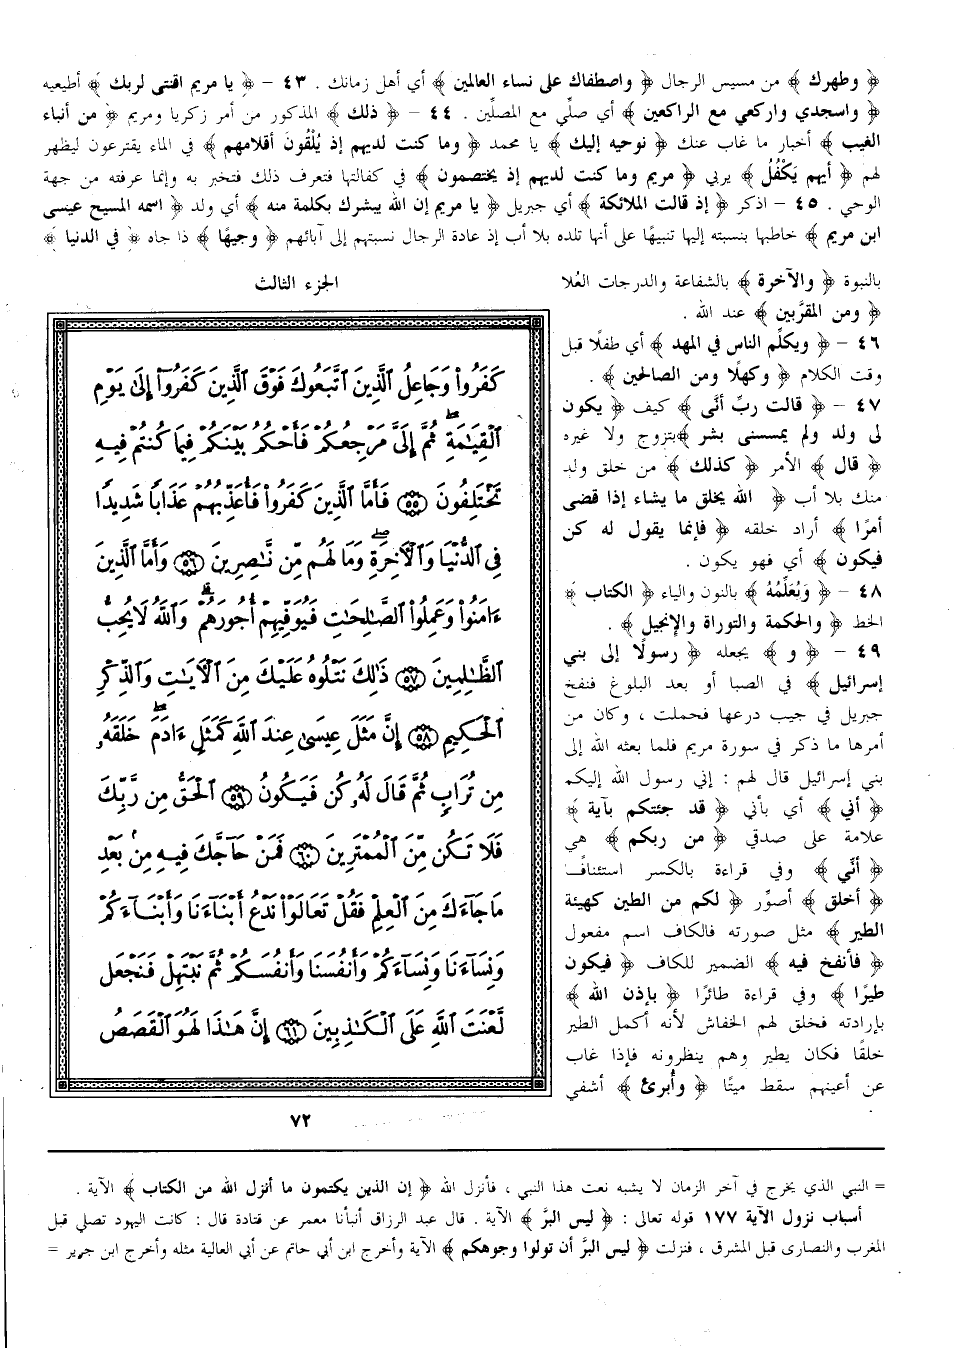 ﴿ وطهرك ﴾ من مسيس الرجال ﴿ واصطفاك على نساء العالمين ﴾ أي أهل زمانك . ٤٣ – ﴿ يا مريم اقنتى لربك ﴾ أطيعيه
﴿ واسجدي واركعي مع الراكعين ﴾ أي صلِّي مع المصلِّين . ٤٤ – ﴿ ذلك ﴾ المذكور من أمر زكريا ومريم ﴿ من أنباء
الغيب ﴾ أخبار ما غاب عنك ﴿ نوحيه إليك ﴾ يا محمد ﴿ وما كنت لديهم إذ يُلْقُونَ أقلامهم ﴾ في الماء يقترعون ليظهر
لهم ﴿ أيهم يَكْفُلُ ﴾ يربي ﴿ مريم وما كنت لديهم إذ يختصمون ﴾ في كفالتها فتعرف ذلك فتخبر به وإنما عرفته من جهة
الوحي . ٤٥ – اذكر ﴿ إذ قالت الملائكة ﴾ أي جبريل ﴿ يا مريم إن الله يبشرك بكلمة منه ﴾ أي ولد ﴿ اسمه المسيح عيسى
ابن مريم ﴾ خاطبها بنسبته إليها تنبيهًا على أنها تلده بلا أب إذ عادة الرجال نسبتهم إلى آبائهم ﴿ وجيهًا ﴾ ذا جاه ﴿ في الدنيا ﴾
بالنبوة ﴿ والآخرة ﴾ بالشفاعة والدرجات العُلا
﴿ ومن المقرَّبين ﴾ عند الله .
٤٦ – ﴿ ويكلِّم الناس في المهد ﴾ أي طفلًا قبل
وقت الكلام ﴿ وكهلًا ومن الصالحين ﴾ .
٤٧ – ﴿ قالت ربِّ أنَّى ﴾ كيف ﴿ يكون
لى ولد ولم يمسسنى بشر ﴾بتزوج ولا غيره
﴿ قال ﴾ الأمر ﴿ كذلك ﴾ من خلق ولد
منك بلا أب ﴿ الله يخلق ما يشاء إذا قضى
أمرًا ﴾ أراد خلقه ﴿ فإنما يقول له كن
فيكون ﴾ أي فهو يكون .
٤٨ – ﴿ وَنُعَلِّمُهُ ﴾ بالنون والياء ﴿ الكتاب ﴾
الخط ﴿ والحكمة والتوراة والإنجيل ﴾ .
٤٩ – ﴿ و ﴾ يجعله ﴿ رسولًا إلى بني
إسرائيل ﴾ في الصبا أو بعد البلوغ فنفخ
جبريل في جيب درعها فحملت ، وكان من
أمرها ما ذكر في سورة مريم فلما بعثه الله إلى
بني إسرائيل قال لهم : إني رسول الله إليكم
﴿ أني ﴾ أي بأني ﴿ قد جئتكم بآية ﴾
علامة على صدقي ﴿ من ربكم ﴾ هي
﴿ أنّي ﴾ وفي قراءة بالكسر استئنافًـا
﴿ أخلق ﴾ أصوِّر ﴿ لكم من الطين كهيئة
الطير ﴾ مثل صورته فالكاف اسم مفعول
﴿ فأنفخ فيه ﴾ الضمير للكاف ﴿ فيكون
طيرًا ﴾ وفي قراءة طائرًا ﴿ بإذن الله ﴾
بإرادته فخلق لهم الخفاش لأنه أكمل الطير
خلقًا فكان يطير وهم ينظرونه فإذا غاب
عن أعينهم سقط ميتًا ﴿ وأبرئ ﴾ أشفي
الجزء الثالث
كَفَرُوا۟ وَجَاعِلُ ٱلَّذِينَ ٱتَّبَعُوكَ فَوْقَ ٱلَّذِينَ كَفَرُوٓا۟ إِلَىٰ يَوْمِ
ٱلْقِيَٰمَةِ ۖ ثُمَّ إِلَىَّ مَرْجِعُكُمْ فَأَحْكُمُ بَيْنَكُمْ فِيمَا كُنتُمْ فِيهِ
تَخْتَلِفُونَ ٥٥ فَأَمَّا ٱلَّذِينَ كَفَرُوا۟ فَأُعَذِّبُهُمْ عَذَابًا شَدِيدًا
فِى ٱلدُّنْيَا وَٱلْءَاخِرَةِ ۖ وَمَا لَهُم مِّن نَّٰصِرِينَ ٥٦ وَأَمَّا ٱلَّذِينَ
ءَامَنُوا۟ وَعَمِلُوا۟ ٱلصَّٰلِحَٰتِ فَيُوَفِّيهِمْ أُجُورَهُمْ ۗ وَٱللَّهُ لَا يُحِبُّ
ٱلظَّٰلِمِينَ ٥٧ ذَٰلِكَ نَتْلُوهُ عَلَيْكَ مِنَ ٱلْءَايَٰتِ وَٱلذِّكْرِ
ٱلْحَكِيمِ ٥٨ إِنَّ مَثَلَ عِيسَىٰ عِندَ ٱللَّهِ كَمَثَلِ ءَادَمَ ۖ خَلَقَهُۥ
مِن تُرَابٍ ثُمَّ قَالَ لَهُۥ كُن فَيَكُونُ ٥٩ ٱلْحَقُّ مِن رَّبِّكَ
فَلَا تَكُن مِّنَ ٱلْمُمْتَرِينَ ٦٠ فَمَنْ حَآجَّكَ فِيهِ مِنۢ بَعْدِ
مَا جَآءَكَ مِنَ ٱلْعِلْمِ فَقُلْ تَعَالَوْا۟ نَدْعُ أَبْنَآءَنَا وَأَبْنَآءَكُمْ
وَنِسَآءَنَا وَنِسَآءَكُمْ وَأَنفُسَنَا وَأَنفُسَكُمْ ثُمَّ نَبْتَهِلْ فَنَجْعَل
لَّعْنَتَ ٱللَّهِ عَلَى ٱلْكَٰذِبِينَ ٦١ إِنَّ هَٰذَا لَهُوَ ٱلْقَصَصُ
٧٢
= النبي الذي يخرج في آخر الزمان لا يشبه نعت هذا النبي ، فأنزل الله ﴿ إن الذين يكتمون ما أنزل الله من الكتاب ﴾ الآية .
أسباب نزول الآية ١٧٧ قوله تعالى : ﴿ ليس البرَّ ﴾ الآية . قال عبد الرزاق أنبأنا معمر عن قتادة قال : كانت اليهود تصلي قبل
المغرب والنصارى قبل المشرق ، فنزلت ﴿ ليس البرَّ أن تولوا وجوهكم ﴾ الآية وأخرج ابن أبي حاتم عن أبي العالية مثله وأخرج ابن جرير =